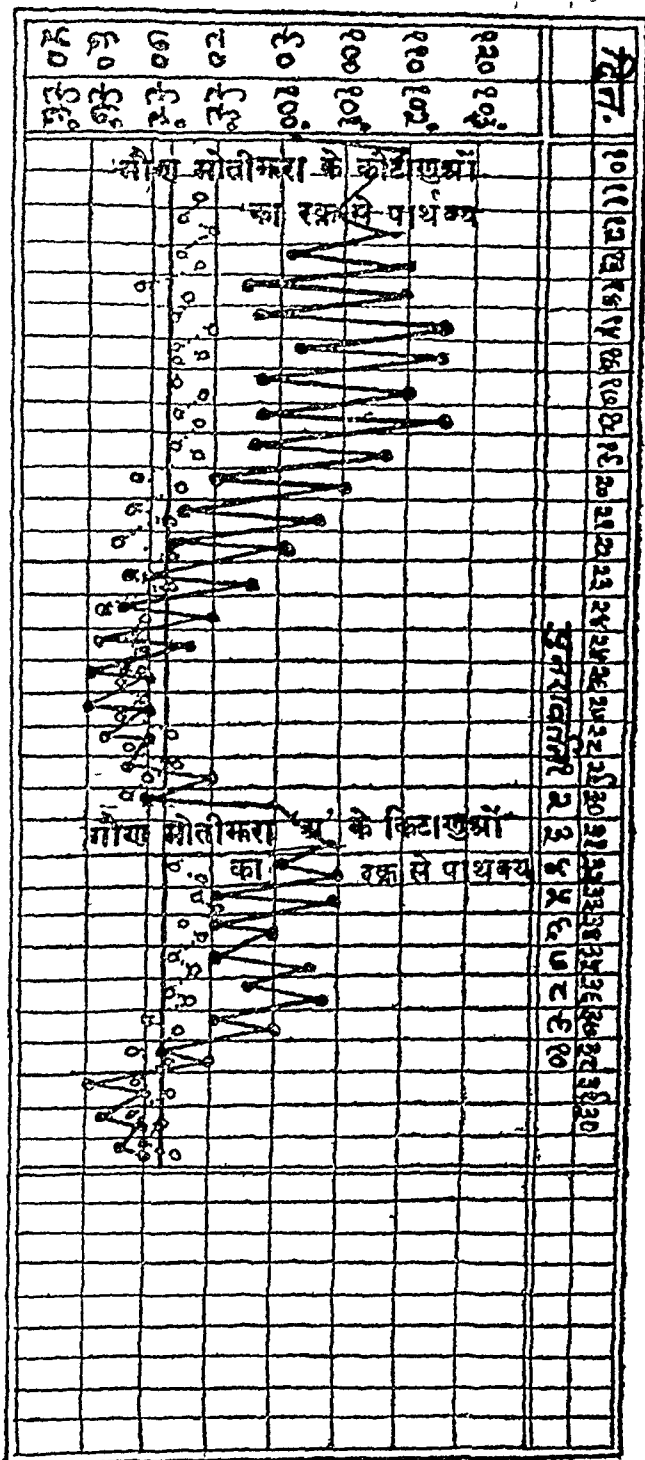 दिन. १० ११ १२ १३ १४ १५ १६ १७ १८ १९ २० २१ २२ २३ २४ २५ २६ २७ २८ २९ ३० ३१ ३२ ३३ ३४ ३५ ३६ ३७ ३८ ३९ ३०
पुनरावर्तन १ २ ३ ४ ५ ६ ७ ८ ९ १०
१२० १०३°
११० १०२°
१०० १०१°
९० १००°
८० ९९°
७० ९८°
६० ९७°
५० ९६°
गौण मोतीझरा के कीटाणुओं
का रक्त से पार्थक्य
गौण मोतीझरा 'अ' के किटाणुओं
का रक्त से पाथक्य